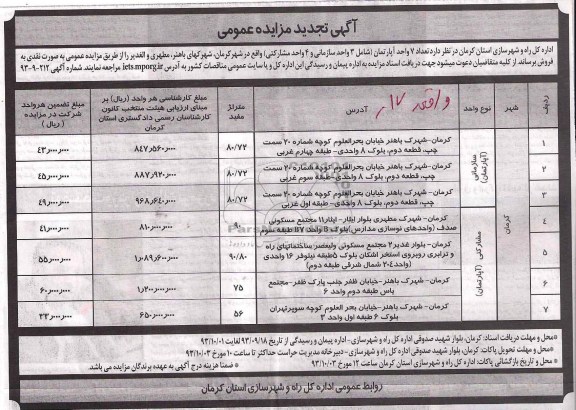 آگهی تجدید مزایده عمومی
اداره کل راه و شهرسازی استان کرمان در نظر دارد تعداد ۷ واحد آپارتمان (شامل ۳ واحد سازمانی و ۴ واحد مشارکتی) واقع در شهر کرمان، شهرکهای باهنر، مطهری و الغدیر را از طریق مزایده عمومی به صورت نقدی به
فروش برساند. از کلیه متقاضیان دعوت میشود جهت دریافت اسناد مزایده به اداره پیمان و رسیدگی این اداره کل و یا سایت عمومی مناقصات کشور به آدرس iets.mporg.ir مراجعه نمایند. شماره آگهی ۲۱۲-۹-۹۳
ردیف شهر نوع واحد آدرس متراژ مفید مبلغ کارشناسی هر واحد (ریال) بر مبنای ارزیابی هیئت منتخب کانون کارشناسان رسمی دادگستری استان کرمان مبلغ تضمین هر واحد شرکت در مزایده (ریال)
کرمان
سازمانی (آپارتمان)
۱ کرمان-شهرک باهنر خیابان بحرالعلوم کوچه شماره ۲۰ سمت چپ، قطعه دوم، بلوک ۸ واحدی- طبقه چهارم غربی ۸۰/۷۲ ۸۴۷٫۵۶۰٫۰۰۰ ۴۳٫۰۰۰٫۰۰۰
۲ کرمان-شهرک باهنر خیابان بحرالعلوم کوچه شماره ۲۰ سمت چپ، قطعه دوم، بلوک ۸ واحدی- طبقه سوم غربی ۸۰/۷۲ ۸۸۷٫۹۲۰٫۰۰۰ ۴۵٫۰۰۰٫۰۰۰
۳ کرمان-شهرک باهنر خیابان بحرالعلوم کوچه شماره ۲۰ سمت چپ، قطعه دوم، بلوک ۸ واحدی- طبقه اول غربی ۸۰/۷۲ ۹۶۸٫۶۴۰٫۰۰۰ ۴۹٫۰۰۰٫۰۰۰
مشارکتی (آپارتمان)
۴ کرمان- شهرک مطهری بلوار ایثار- ایثار۱۱ مجتمع مسکونی صدف (واحدهای نوسازی مدارس) بلوک B واحد B7 طبقه سوم ۹۰ ۸۱۰٫۰۰۰٫۰۰۰ ۴۱٫۰۰۰٫۰۰۰
۵ کرمان- بلوار غدیر۲ مجتمع مسکونی ولیعصر ساختمانهای راه و ترابری روبروی استخر اشکان بلوک ۵ طبقه نیلوفر ۱۶ واحدی (واحد ۲۰۴ شمال شرقی طبقه دوم) ۹۰/۸۰ ۱٫۰۸۹٫۶۰۰٫۰۰۰ ۵۵٫۰۰۰٫۰۰۰
۶ کرمان-شهرک باهنر- خیابان ظفر جنب پارک ظفر-مجتمع یاس طبقه دوم واحد ۶ ۷۵ ۱٫۲۰۰٫۰۰۰٫۰۰۰ ۶۰٫۰۰۰٫۰۰۰
۷ کرمان-شهرک باهنر-خیابان بحر العلوم کوچه سوپر تهران بلوک ۶ طبقه اول واحد ۳ ۵۶ ۶۵۰٫۰۰۰٫۰۰۰ ۳۳٫۰۰۰٫۰۰۰
* محل و مهلت دریافت اسناد: کرمان، بلوار شهید صدوقی اداره کل راه و شهرسازی- اداره پیمان و رسیدگی از تاریخ ۹۳/۰۹/۱۸ لغایت ۹۳/۱۰/۰۱
* محل و مهلت تحویل پاکات: کرمان، بلوار شهید صدوقی اداره کل راه و شهرسازی- دبیرخانه مدیریت حراست حداکثر تا ساعت ۱۰ مورخ ۹۳/۱۰/۰۳
* محل و تاریخ بازگشائی پاکات: اداره کل راه و شهرسازی استان کرمان ساعت ۱۲ مورخ ۹۳/۱۰/۰۳ * ضمنا هزینه درج آگهی به عهده برندگان مزایده می باشد.
روابط عمومی اداره کل راه و شهرسازی استان کرمان